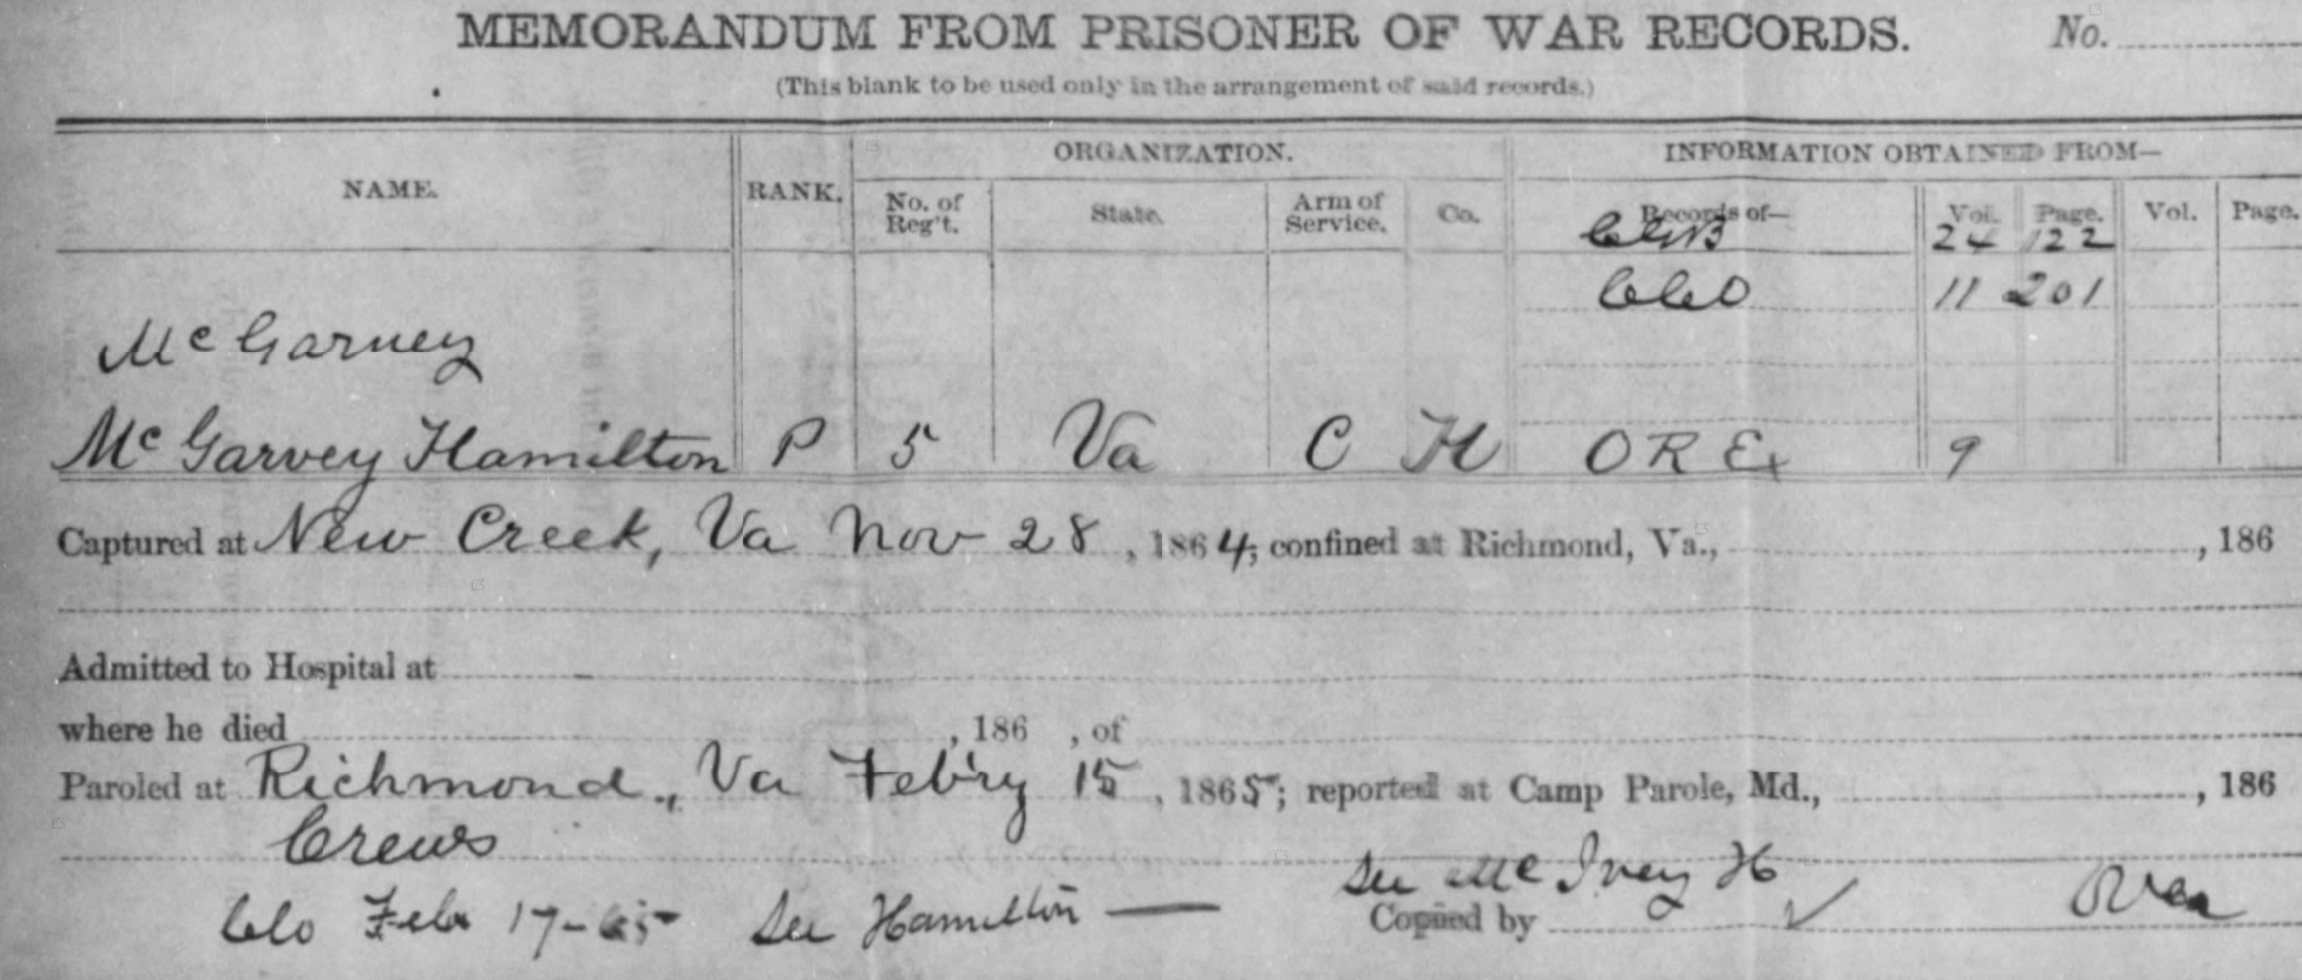 MEMORANDUM FROM PRISONER OF WAR RECORDS. No.
(This blank to be used only in the arrangement of said records.)
NAME. RANK. ORGANIZATION. INFORMATION OBTAINED FROM—
No. of Reg't. State. Arm of Service. Co. Records of— Vol. Page. Vol. Page.
24 122
11 201
McGarney
McGarvey Hamilton P 5 Va C H O R Ex 9
Captured at New Creek, Va Nov 28, 1864; confined at Richmond, Va., , 186
Admitted to Hospital at
where he died , 186 , of
Paroled at Richmond., Va Feb'ry 15, 1865; reported at Camp Parole, Md., , 186
Crews
Feb 17-65 See Hamilton —
See McIvey H
Copied by ✓ Over